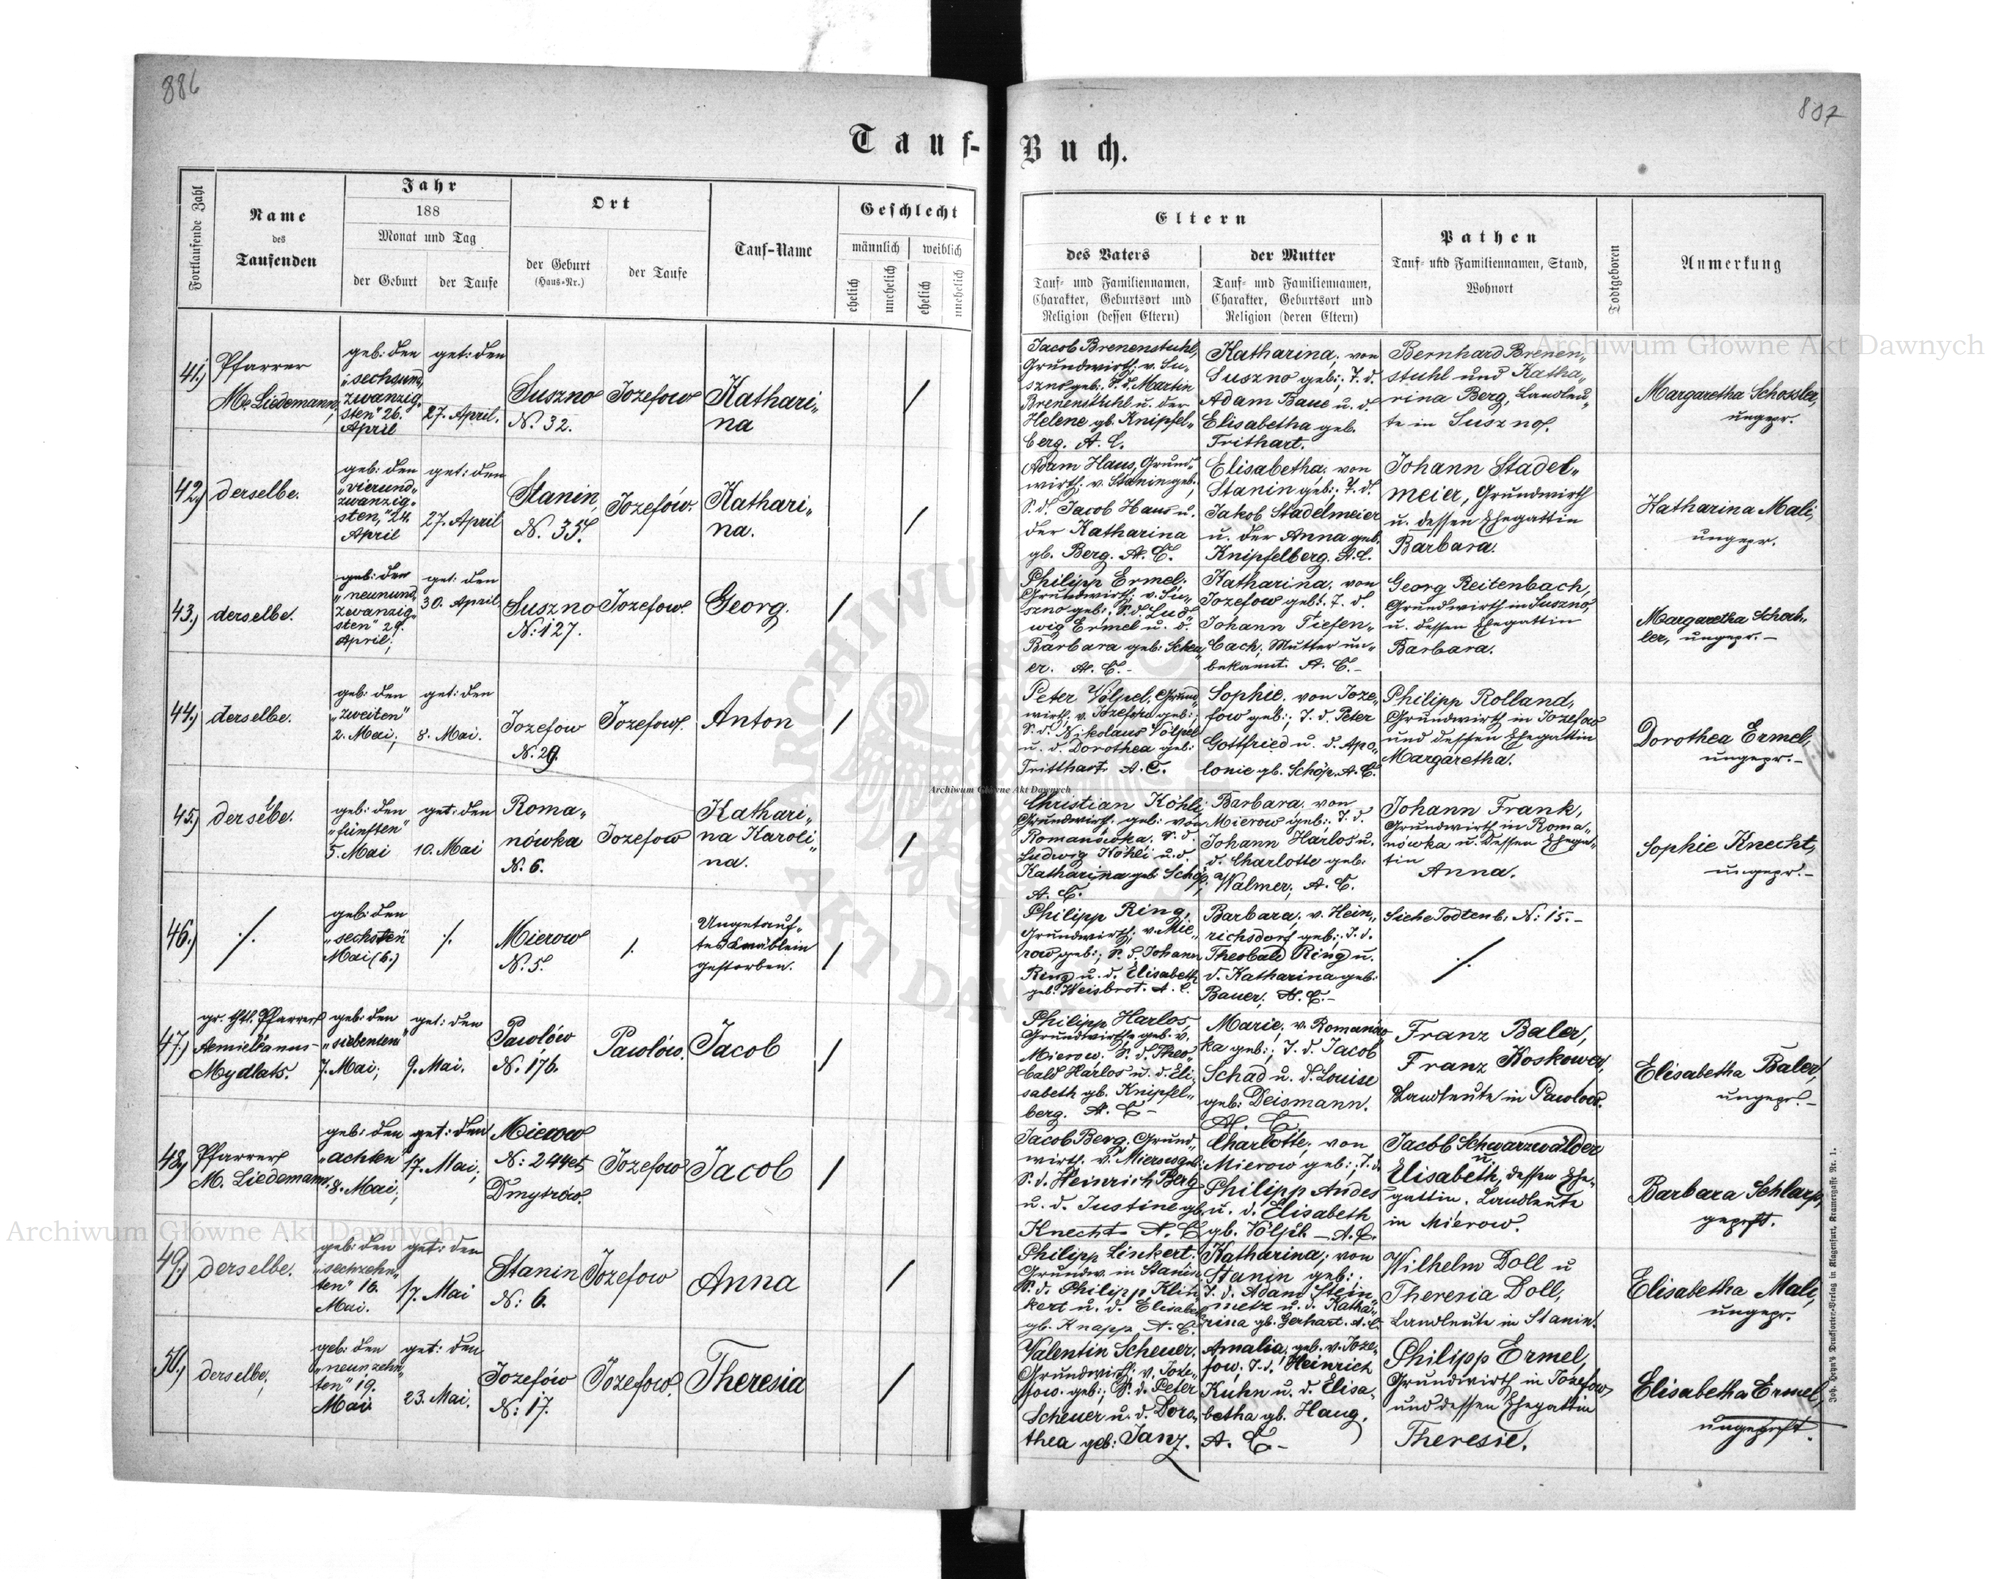 886
887
Tauf-Buch.
Fortlaufende Zahl
Name
des
Taufenden
Jahr
188
Monat und Tag
der Geburt
der Taufe
Ort
der Geburt
(Haus-Nr.)
der Taufe
Tauf-Name
Geschlecht
männlich
weiblich
ehelich
unehelich
ehelich
unehelich
Eltern
des Vaters
Tauf- und Familiennamen,
Charakter, Geburtsort und
Religion (dessen Eltern)
der Mutter
Tauf- und Familiennamen,
Charakter, Geburtsort und
Religion (deren Eltern)
Pathen
Tauf- und Familiennamen, Stand,
Wohnort
Todtgeboren
Anmerkung
41.)
Pfarrer
M. Liedemann,
geb: den
"sechsund„
zwanzig„
sten" 26.
April
get: den
27. April.
Suszno
N: 32.
Jozefow
Kathari„
na
/
Jacob Brenenstuhl,
Grundwirth v. Su„
szno geb: S. d. Martin
Brenenstuhl u. der
Helene gb. Knipfel„
berg. A. C.
Katharina; von
Suszno geb:; T. d.
Adam Baue u. d.
Elisabetha geb.
Trithart.
Bernhard Brenen„
stuhl und Katha„
rina Berg, Landleu„
te in Suszno.
Margaretha
ungepr.
42.)
derselbe.
geb: den
"vierund„
zwanzig„
sten," 24.
April
get: den
27. April
Stanin,
N. 35.
Jozefów.
Kathari„
na.
/
Adam Haus, Grund„
wirth v. Stanin geb:,
S. d. Jacob Haus u.
der Katharina
gb. Berg. A. C.
Elisabetha; von
Stanin geb:; T. d.
Jakob Stadelmeier
u. der Anna geb.
Knipfelberg. A. C.
Johann Stadel„
meier, Grundwirth
u. dessen Ehegattin
Barbara.
Katharina Mali,
ungepr.
43.)
derselbe.
geb: den
"neunund„
zwanzig„
sten" 29.
April;
get: den
30. April.
Suszno
N: 127.
Jozefow.
Georg.
/
Philipp Ermel;
Grundwirth v. Su„
szno geb: S. d. Lud„
wig Ermel u. d.
Barbara geb: Scheu„
er. A. C.-
Katharina; von
Jozefow geb:. T. d.
Johann Tiefen„
bach, Mutter un„
bekannt. A. C.-
Georg Reitenbach,
Grundwirth in Suszno
u. dessen Ehegattin
Barbara.
Margaretha
ler, ungepr.-
44.)
derselbe.
geb: den
"zweiten"
2. Mai;
get: den
8. Mai.
Jozefow
N. 29.
Jozefow.
Anton
/
Peter Völpel, Grund„
wirth; v. Jozefow geb:;
S. d. Nikolaus Völpel
u. d. Dorothea geb:
Tritthart. A. C.
Sophie; von Joze„
fow geb:; T. d. Peter
Gottfried u. d. Apo„
lonie gb. Schöp. A. C.
Philipp Rolland,
Grundwirth in Jozefow
und dessen Ehegattin
Margaretha.
Dorothea Ermel,
ungepr.-
45.)
derselbe.
geb: den
"fünften"
5. Mai
get: den
10. Mai
Roma„
nówka
N. 6.
Jozefow
Kathari„
na Karoli„
na.
/
Christian Köhli;
Grundwirth. geb: von
Romanówka. S. d.
Ludwig Köhli u. d.
Katharina geb: Schöp.
A. C.
Barbara; von
Mierow geb:; T. d.
Johann Harlos u.
d. Charlotte geb:
Walmer; A. C.
Johann Frank,
Grundwirth in Roma„
nówka u. dessen Ehegat„
tin
Anna.
Sophie Knecht,
ungepr.-
46.)
./.
geb: den
"sechsten"
Mai (6.)
./.
Mierow
N. 5.
/.
Ungetauf„
tes Knäblein
gestorben.
/
Philipp Ring;
Grundwirth; v. Mie„
row geb:; S. d. Johann
Ring u. d. Elisabeth
geb: Weisbrot. A. C.
Barbara; v. Hein„
richsdorf geb:; T. d.
Theobald Ring u.
d. Katharina geb:
Bauer; A. C.-
Siehe Todtenb. N: 15.-
./.
47.)
gr. kth. Pfarrer
Mydlats.
geb: den
"siebenten"
7. Mai;
get: den
9. Mai.
Pawlów
N: 176.
Pawlów.
Jacob
/
Philipp Harlos,
Grundwirth geb: v.
Mierow. S. d. Theo„
bald Harlos u. d. Eli„
sabeth gb. Knipfel„
berg. A. C-
Marie; v. Romanów„
ka geb:; T. d. Jacob
Schad u. d. Louise
geb: Deismann.
A. C.
Franz Baler,
Franz Koskower,
Landleute in Pawlow.
Elisabetha Baler,
ungepr.-
48.)
Pfarrer
M. Liedemann
geb: den
"achten"
8. Mai;
get: den
17. Mai;
Mierow
N: 24
Dmytrów.
Jozefow
Jacob
/
Jacob Berg, Grund„
wirth. v. Mierow geb:
S. d. Heinrich Berg
u. d. Justine gb.
Knecht. A. C
Charlotte; von
Mierow geb:; T. d.
Philipp Andes
u. d. Elisabeth
gb. Völpel - A. C.
Jacob Schwarzwälder
u.
Elisabeth, dessen Ehe„
gattin. Landleute
in Mierow.
Barbara Schlarp,
geprft.
49.)
derselbe.
geb: den
"sechzehn„
ten" 16.
Mai.
get: den
17. Mai
Stanin
N: 6.
Jozefow
Anna
/
Philipp Linkert;
Grundw. in Stanin
S. d. Philipp Klin„
kert u. d. Elisabeth
gb. Knapp. A. C.
Katharina; von
Stanin geb:;
T. d. Adam Stein„
metz u. d. Katha„
rina gb. Gerhart. A. C.
Wilhelm Doll u
Theresia Doll,
Landleute in Stanin.
Elisabetha Mali,
ungepr.
50.)
derselbe,
geb: den
"neunzehn„
ten" 19.
Mai
get: den
23. Mai.
Jozefów
N: 17.
Jozefow.
Theresia
/
Valentin Scheuer.
Grundwirth; v. Joze„
fow. geb:; S. d. Peter
Scheuer u. d. Doro„
thea geb: Janz.
Amalia; geb. v. Joze„
fow; T. d. Heinrich
Kuhn u. d. Elisa„
betha gb. Haug.
A. C-
Philipp Ermel,
Grundwirth in Jozefow
und dessen Ehegattin
Theresie.
Elisabetha Ermel,
ungeprft.
Joh. Leon's Drucksorten-Verlag in Klagenfurt, Kramergasse Nr. 1.
Archiwum Główne Akt Dawnych
Archiwum Główne Akt Dawnych
Archiwum Główne Akt Dawnych